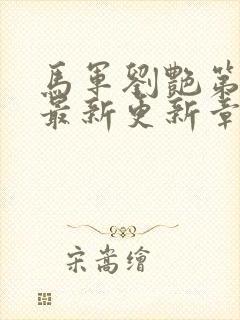 馬軍劉艷第
最新更新章
宋嵩繪